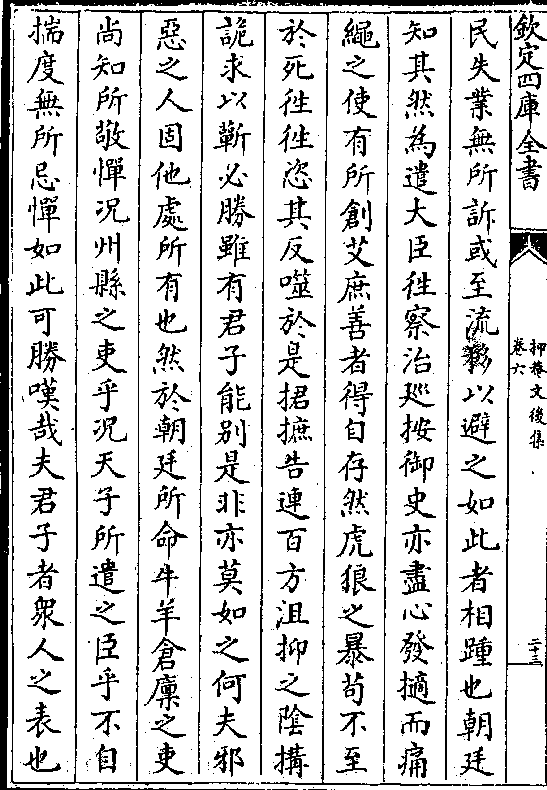 欽定四庫全書
抑菴文後集
卷六
二十三
民失業無所訴或至流移以避之如此者相踵也朝廷
知其然為遣大臣徃察治廵按御史亦盡心發擿而痛
繩之使有所創艾庶善者得自存然虎狼之暴茍不至
於死徃徃恣其反噬於是捃摭告連百方沮抑之陰搆
詭求以蘄必勝雖有君子能别是非亦莫如之何夫邪
惡之人固他處所有也然於朝廷所命牛羊倉廩之吏
尚知所敬憚况州縣之吏乎况天子所遣之臣乎不自
揣度無所忌憚如此可勝嘆哉夫君子者衆人之表也